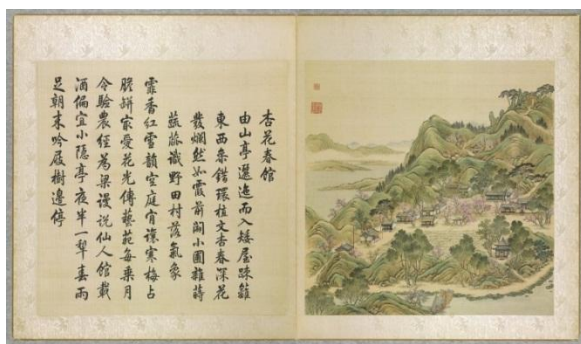 杏花春館
由山亭邐迤而入矮屋疎籬
東西參錯環植文杏春深花
發爛然如霞前闢小圃雜蒔
蔬蓏識野田村落氣象
霏香紅雪韻空庭肯讓寒梅占
膽缾最愛花光傳藝苑每乘月
令驗農經為梁謾說仙人館載
酒偏宜小隱亭夜半一犁春雨
足朝來吟屐樹邊停